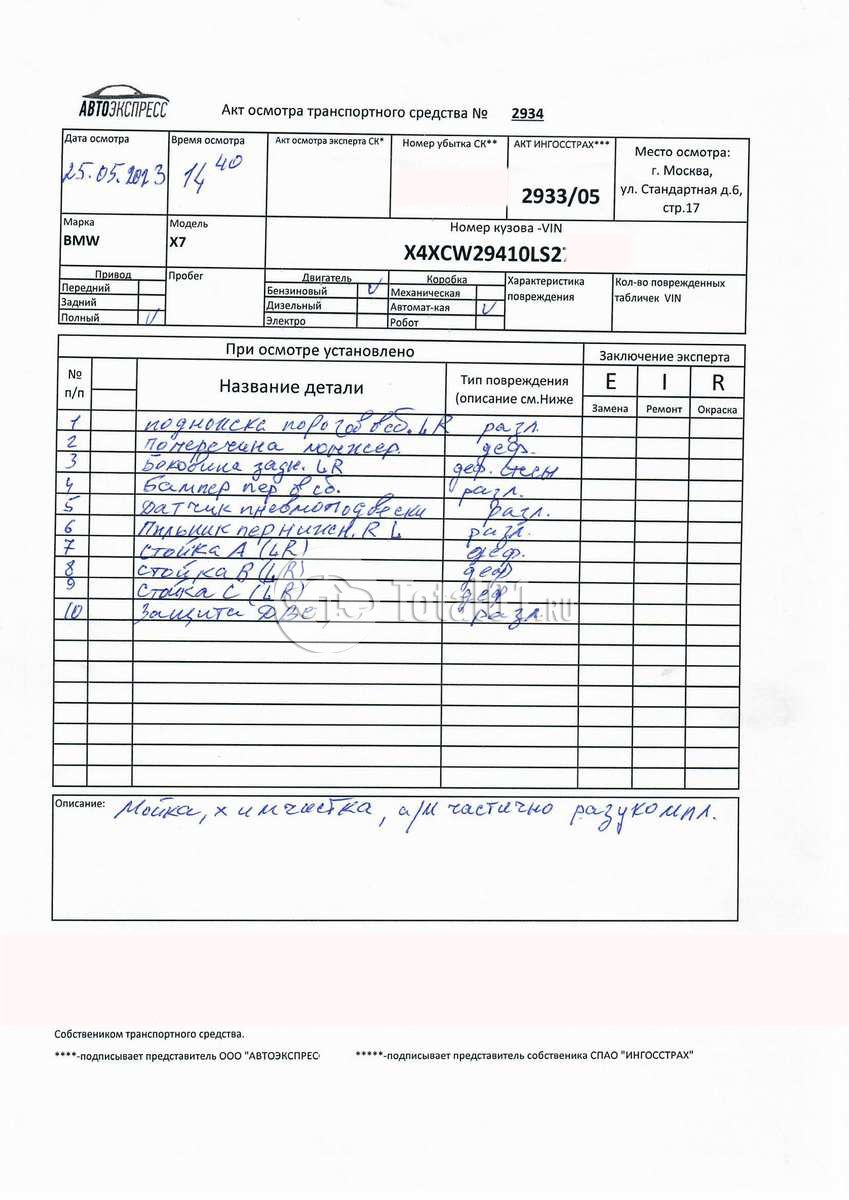 АВТОЭКСПРЕСС
Акт осмотра транспортного средства № 2934
Дата осмотра Время осмотра Акт осмотра эксперта СК* Номер убытка СК** АКТ ИНГОССТРАХ*** Место осмотра:
г. Москва,
ул. Стандартная д.6,
стр.17
25.05.2023 14 40 2933/05
Марка Модель Номер кузова -VIN
BMW X7 X4XCW29410LS2
Привод Пробег Двигатель Коробка Характеристика повреждения Кол-во поврежденных табличек VIN
Передний Бензиновый V Механическая
Задний Дизельный Автомат-кая V
Полный V Электро Робот
При осмотре установлено Заключение эксперта
№ п/п Название детали Тип повреждения (описание см.Ниже E I R
Замена Ремонт Окраска
1 подножка порогов в сб. LR разл.
2 Поперечина лонжер. деф.
3 Боковина задн. LR деф.
4 Бампер пер в сб. разл.
5 Датчик пневмоподвески разл.
6 Пыльник пер нижн. R L разл.
7 Стойка А (LR) деф.
8 Стойка В (LR) деф
9 Стойка С (LR) деф
10 Защита ДВС разл.
Total01.RU
Описание: Мойка, химчистка, а/м частично разукомпл.
Собствеником транспортного средства.
****-подписывает представитель ООО "АВТОЭКСПРЕС *****-подписывает представитель собственика СПАО "ИНГОССТРАХ"